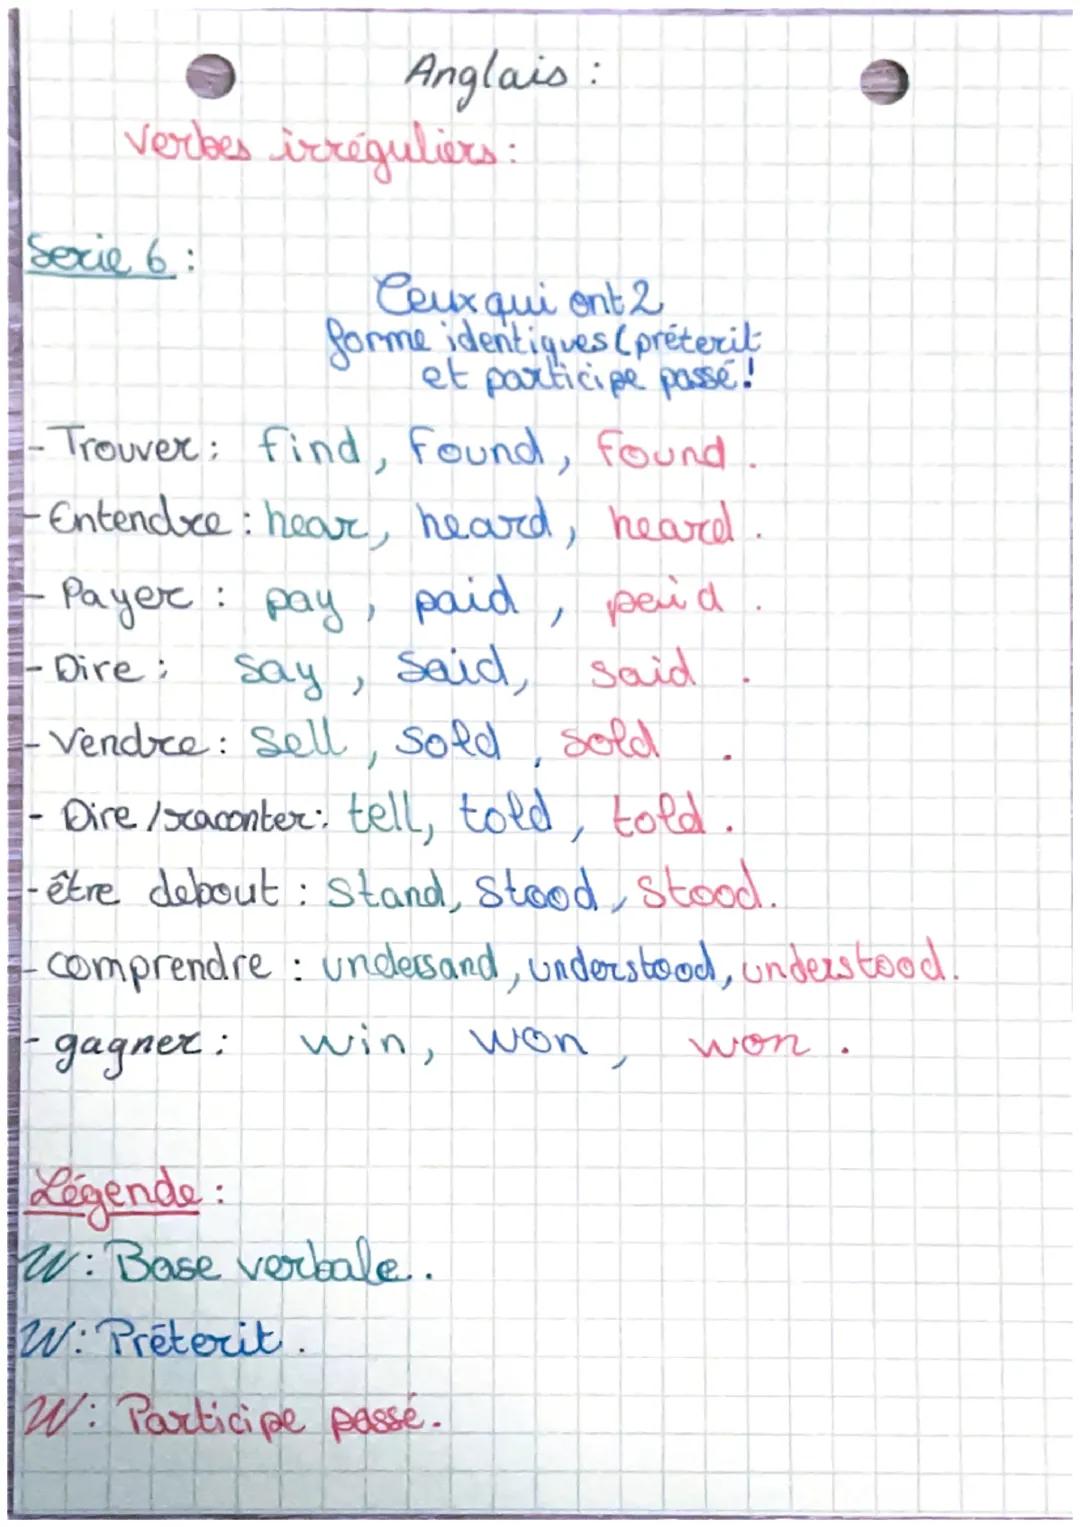 Anglais :
Verbes irréguliers :
Serie 6 :
Ceux qui ont 2
forme identiques (préterit
et participe passé !
- Trouver : find, found, found .
- Entendre : hear, heard, heard .
- Payer : pay, paid, paid .
- Dire : say, said, said .
- Vendre : sell, sold, sold .
- Dire / raconter : tell, told, told .
- être debout : stand, stood, stood.
- comprendre : undersand, understood, understood.
- gagner : win, won, won .
Légende :
W : Base verbale.
W : Préterit.
W : Participe passé.